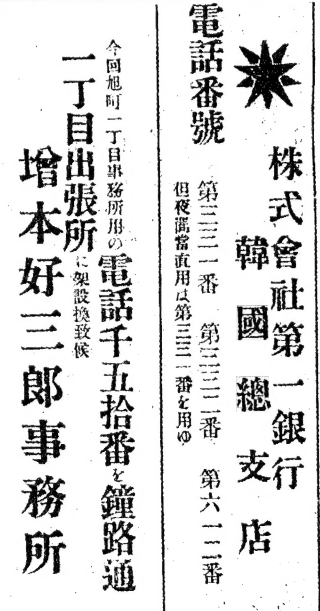 株式會社第一銀行
韓國總支店
電話番號
第三三一番 第三三二番 第六一二番
但夜間當直用は第三三一番を用ゆ
今回旭町一丁目事務所用の電話千五拾番を鐘路通
一丁目出張所に架設換致候
增本好三郎事務所